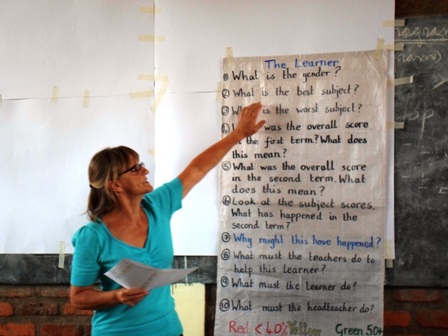 The Learner
① What is the gender?
② What is the best subject?
③ What is the worst subject?
④ was the overall score
the first term? What does
this mean?
⑤ What was the overall score
in the second term. What
does this mean?
⑥ Look at the subject scores.
What has happened in the
second term?
⑦ Why might this have happened?
⑧ What must the teachers do to
help this learner?
⑨ What must the learner do?
⑩ What must the headteacher do?
Red < 40% Yellow Green 50+